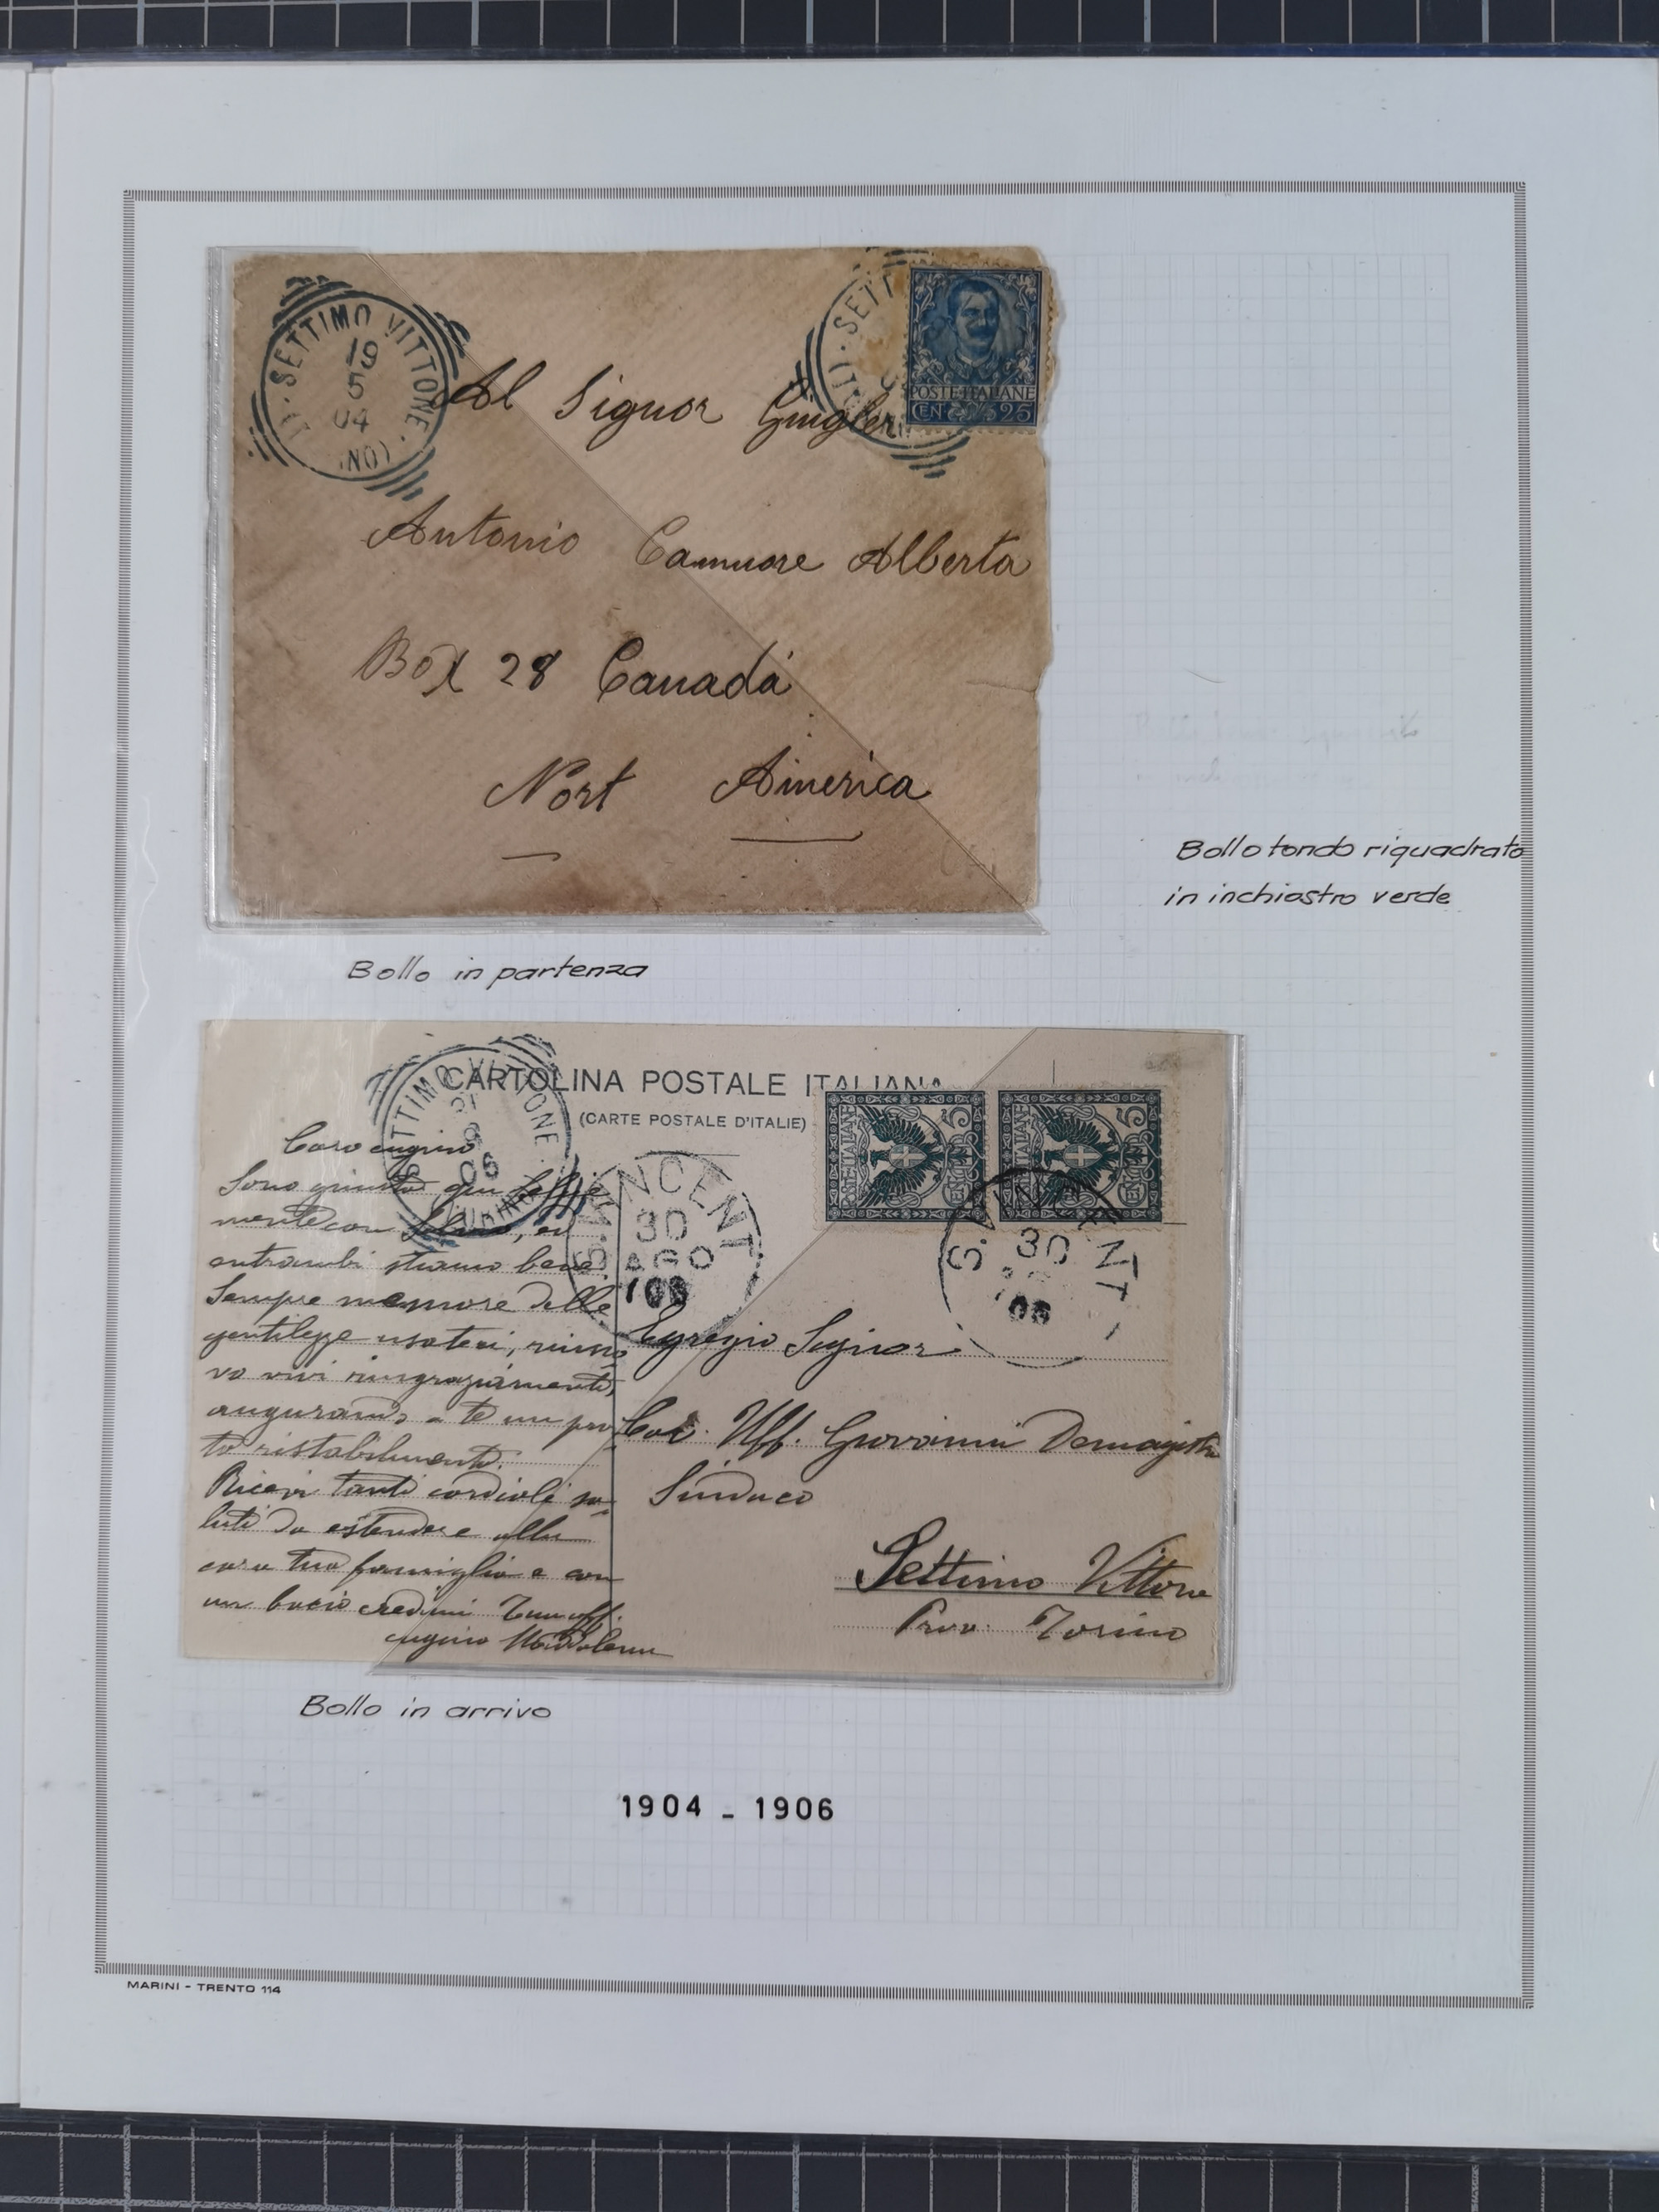 SETTIMO VITTONE
19
5
04
SETT
POSTE ITALIANE
CEN 25
Al Signor
Antonio Canmore Alberta
Box 28 Canadá
Nort America
Bollo tondo riquadrato
in inchiostro verde
Bollo in partenza
CARTOLINA POSTALE ITALIANA
(CARTE POSTALE D'ITALIE)
S. VINCENT
30
AGO
06
S. VINCENT
30
06
Caro cugino
Sono giunto qui
mente con
entrambi stiamo bene.
Sempre memore delle
gentilezze usateci, rinno
vo vivi ringraziamenti,
augurando a te un pron
to ristabilimento.
Ricevi tanti cordiali sa
luti da estendere alla
cara tua famiglia e con
un bacio credimi
cugino
Egregio Signor
Cav. Uff. Giovanni Demagistri
Sindaco
Settimo Vittone
Prov. Torino
Bollo in arrivo
1904 - 1906
MARINI - TRENTO 114